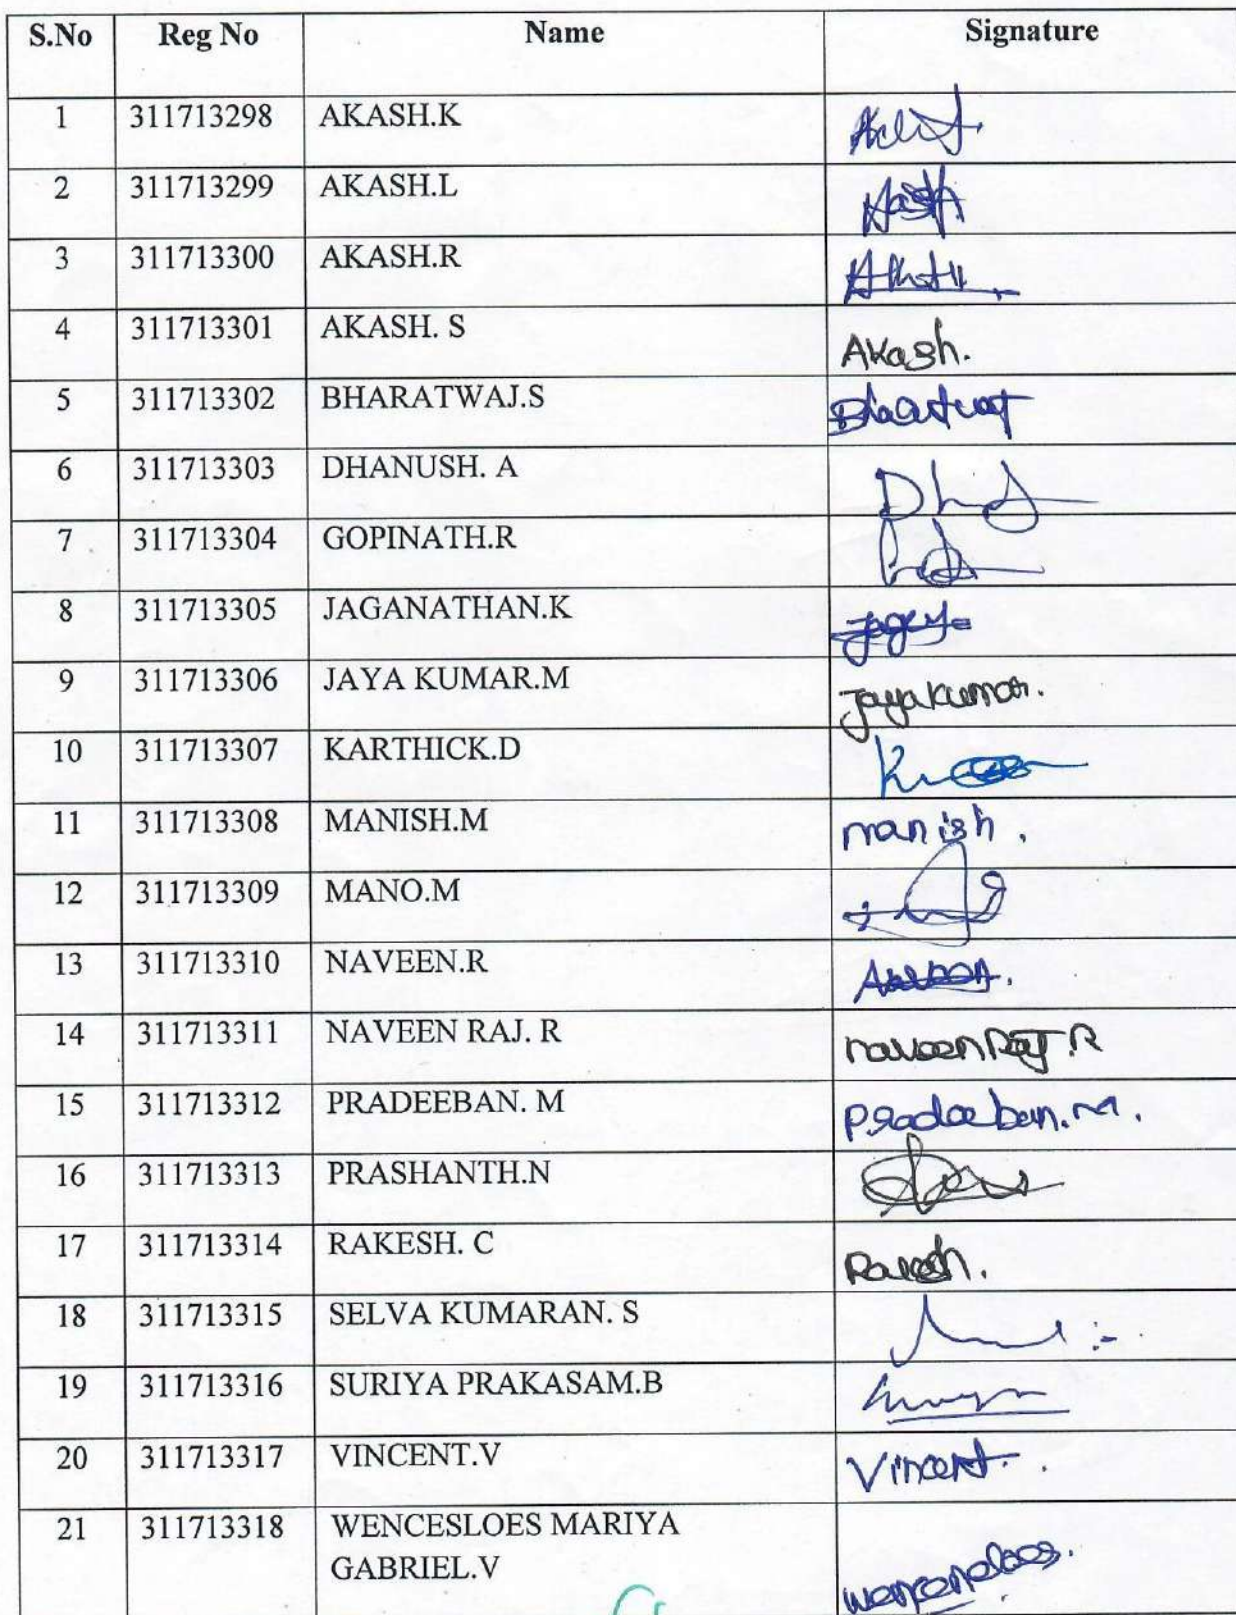 S.No Reg No Name Signature
1 311713298 AKASH.K
2 311713299 AKASH.L
3 311713300 AKASH.R
4 311713301 AKASH. S Akash.
5 311713302 BHARATWAJ.S
6 311713303 DHANUSH. A
7 311713304 GOPINATH.R
8 311713305 JAGANATHAN.K
9 311713306 JAYA KUMAR.M Jayakumar.
10 311713307 KARTHICK.D
11 311713308 MANISH.M manish.
12 311713309 MANO.M
13 311713310 NAVEEN.R
14 311713311 NAVEEN RAJ. R naveen Raj.R
15 311713312 PRADEEBAN. M Pradeeban.M.
16 311713313 PRASHANTH.N
17 311713314 RAKESH. C Rakesh.
18 311713315 SELVA KUMARAN. S
19 311713316 SURIYA PRAKASAM.B
20 311713317 VINCENT.V Vincent.
21 311713318 WENCESLOES MARIYA
GABRIEL.V